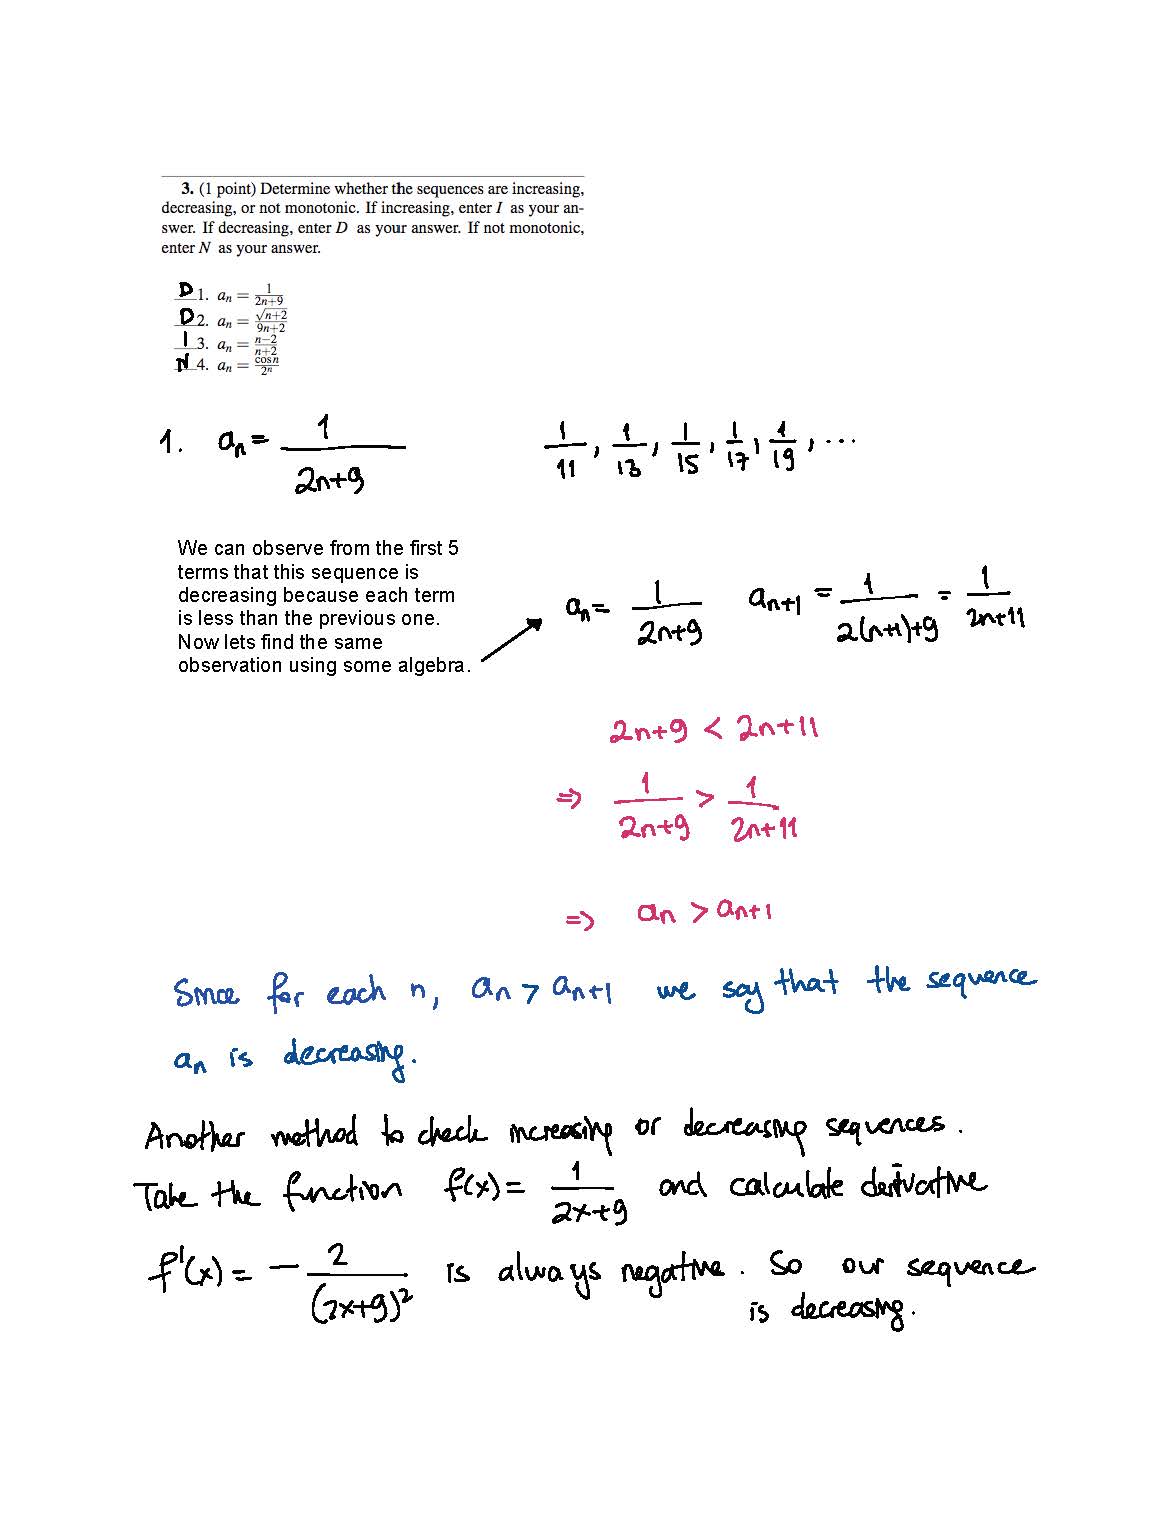 3. (1 point) Determine whether the sequences are increasing,
decreasing, or not monotonic. If increasing, enter I as your an-
swer. If decreasing, enter D as your answer. If not monotonic,
enter N as your answer.
D 1. aₙ = 1/(2n+9)
D 2. aₙ = √(n+2)/(9n+2)
I 3. aₙ = (n−2)/(n+2)
N 4. aₙ = cos n/2ⁿ
1. aₙ = 1/(2n+9) 1/11, 1/13, 1/15, 1/17, 1/19, ...
We can observe from the first 5
terms that this sequence is
decreasing because each term
is less than the previous one.
Now lets find the same
observation using some algebra.
aₙ = 1/(2n+9) aₙ₊₁ = 1/(2(n+1)+9) = 1/(2n+11)
2n+9 < 2n+11
⇒ 1/(2n+9) > 1/(2n+11)
⇒ aₙ > aₙ₊₁
Since for each n, aₙ > aₙ₊₁ we say that the sequence
aₙ is decreasing.
Another method to check increasing or decreasing sequences.
Take the function f(x) = 1/(2x+9) and calculate derivative
f'(x) = − 2/(2x+9)² is always negative. So our sequence
is decreasing.